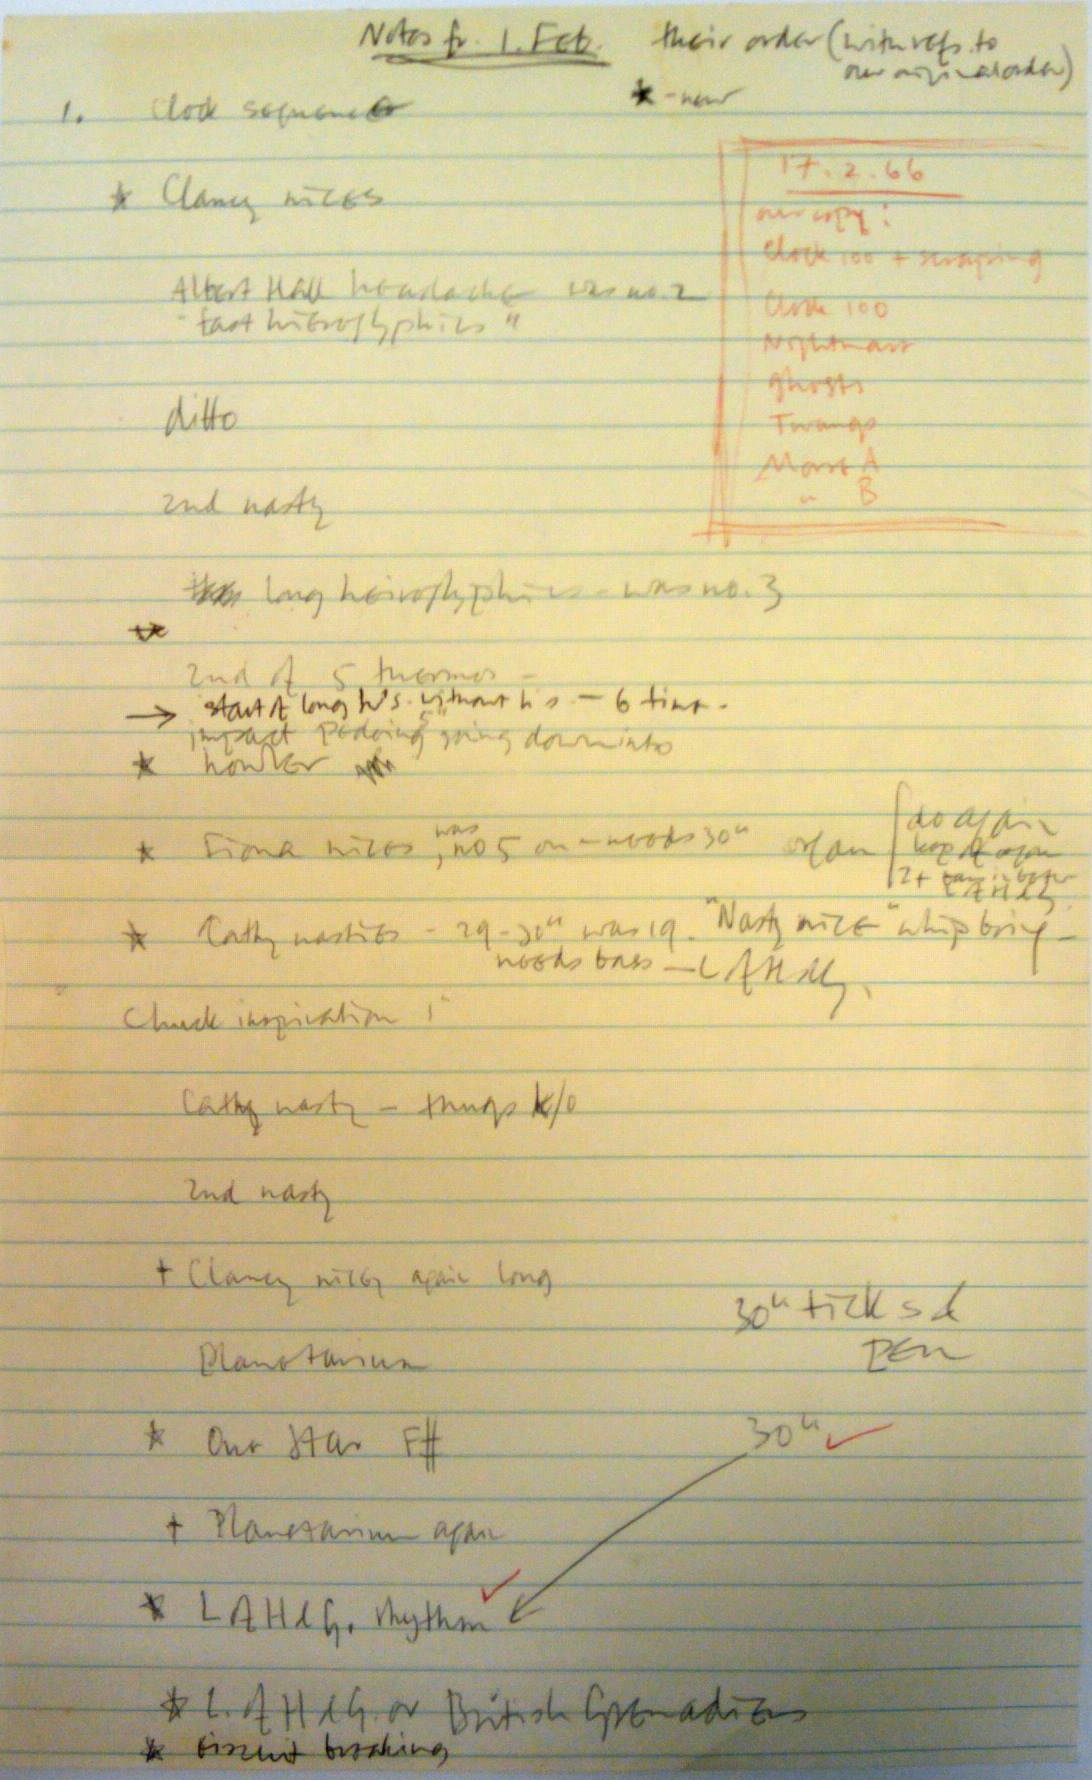 Notes fr. 1. Feb. their order (with refs. to
our original order)
* - new
1. Clock sequence
17. 2. 66
our copy:
Clock 100 + scraping
Clock 100
Nightmare
Ghosts
Twangs
Most A
" B
* Clancy nices
Albert Hall headache was no. 2
"fast hieroglyphics"
ditto
2nd nasty
long heiroglyphics - was no. 3
*
2nd of 5 thermos -
→ start of long h's. without h's - 6 time.
impact going down into
* howler
* Fiona nices, was no 5 on - needs 30" organ
do again
2 +
* Cathy nasties - 29-30" was 19. "Nasty nice" whip boing -
needs bass - L of H & G.
Check inspiration 1"
Cathy nasty - things k/o
2nd nasty
+ Clancy nicey again long
30" ticks &
Planetarium
* Our Star F#
30" ✓
+ Planetarium again
* L of H & G. rhythm ✓
* L. of H & G. or British Grenadiers
* biscuit breaking